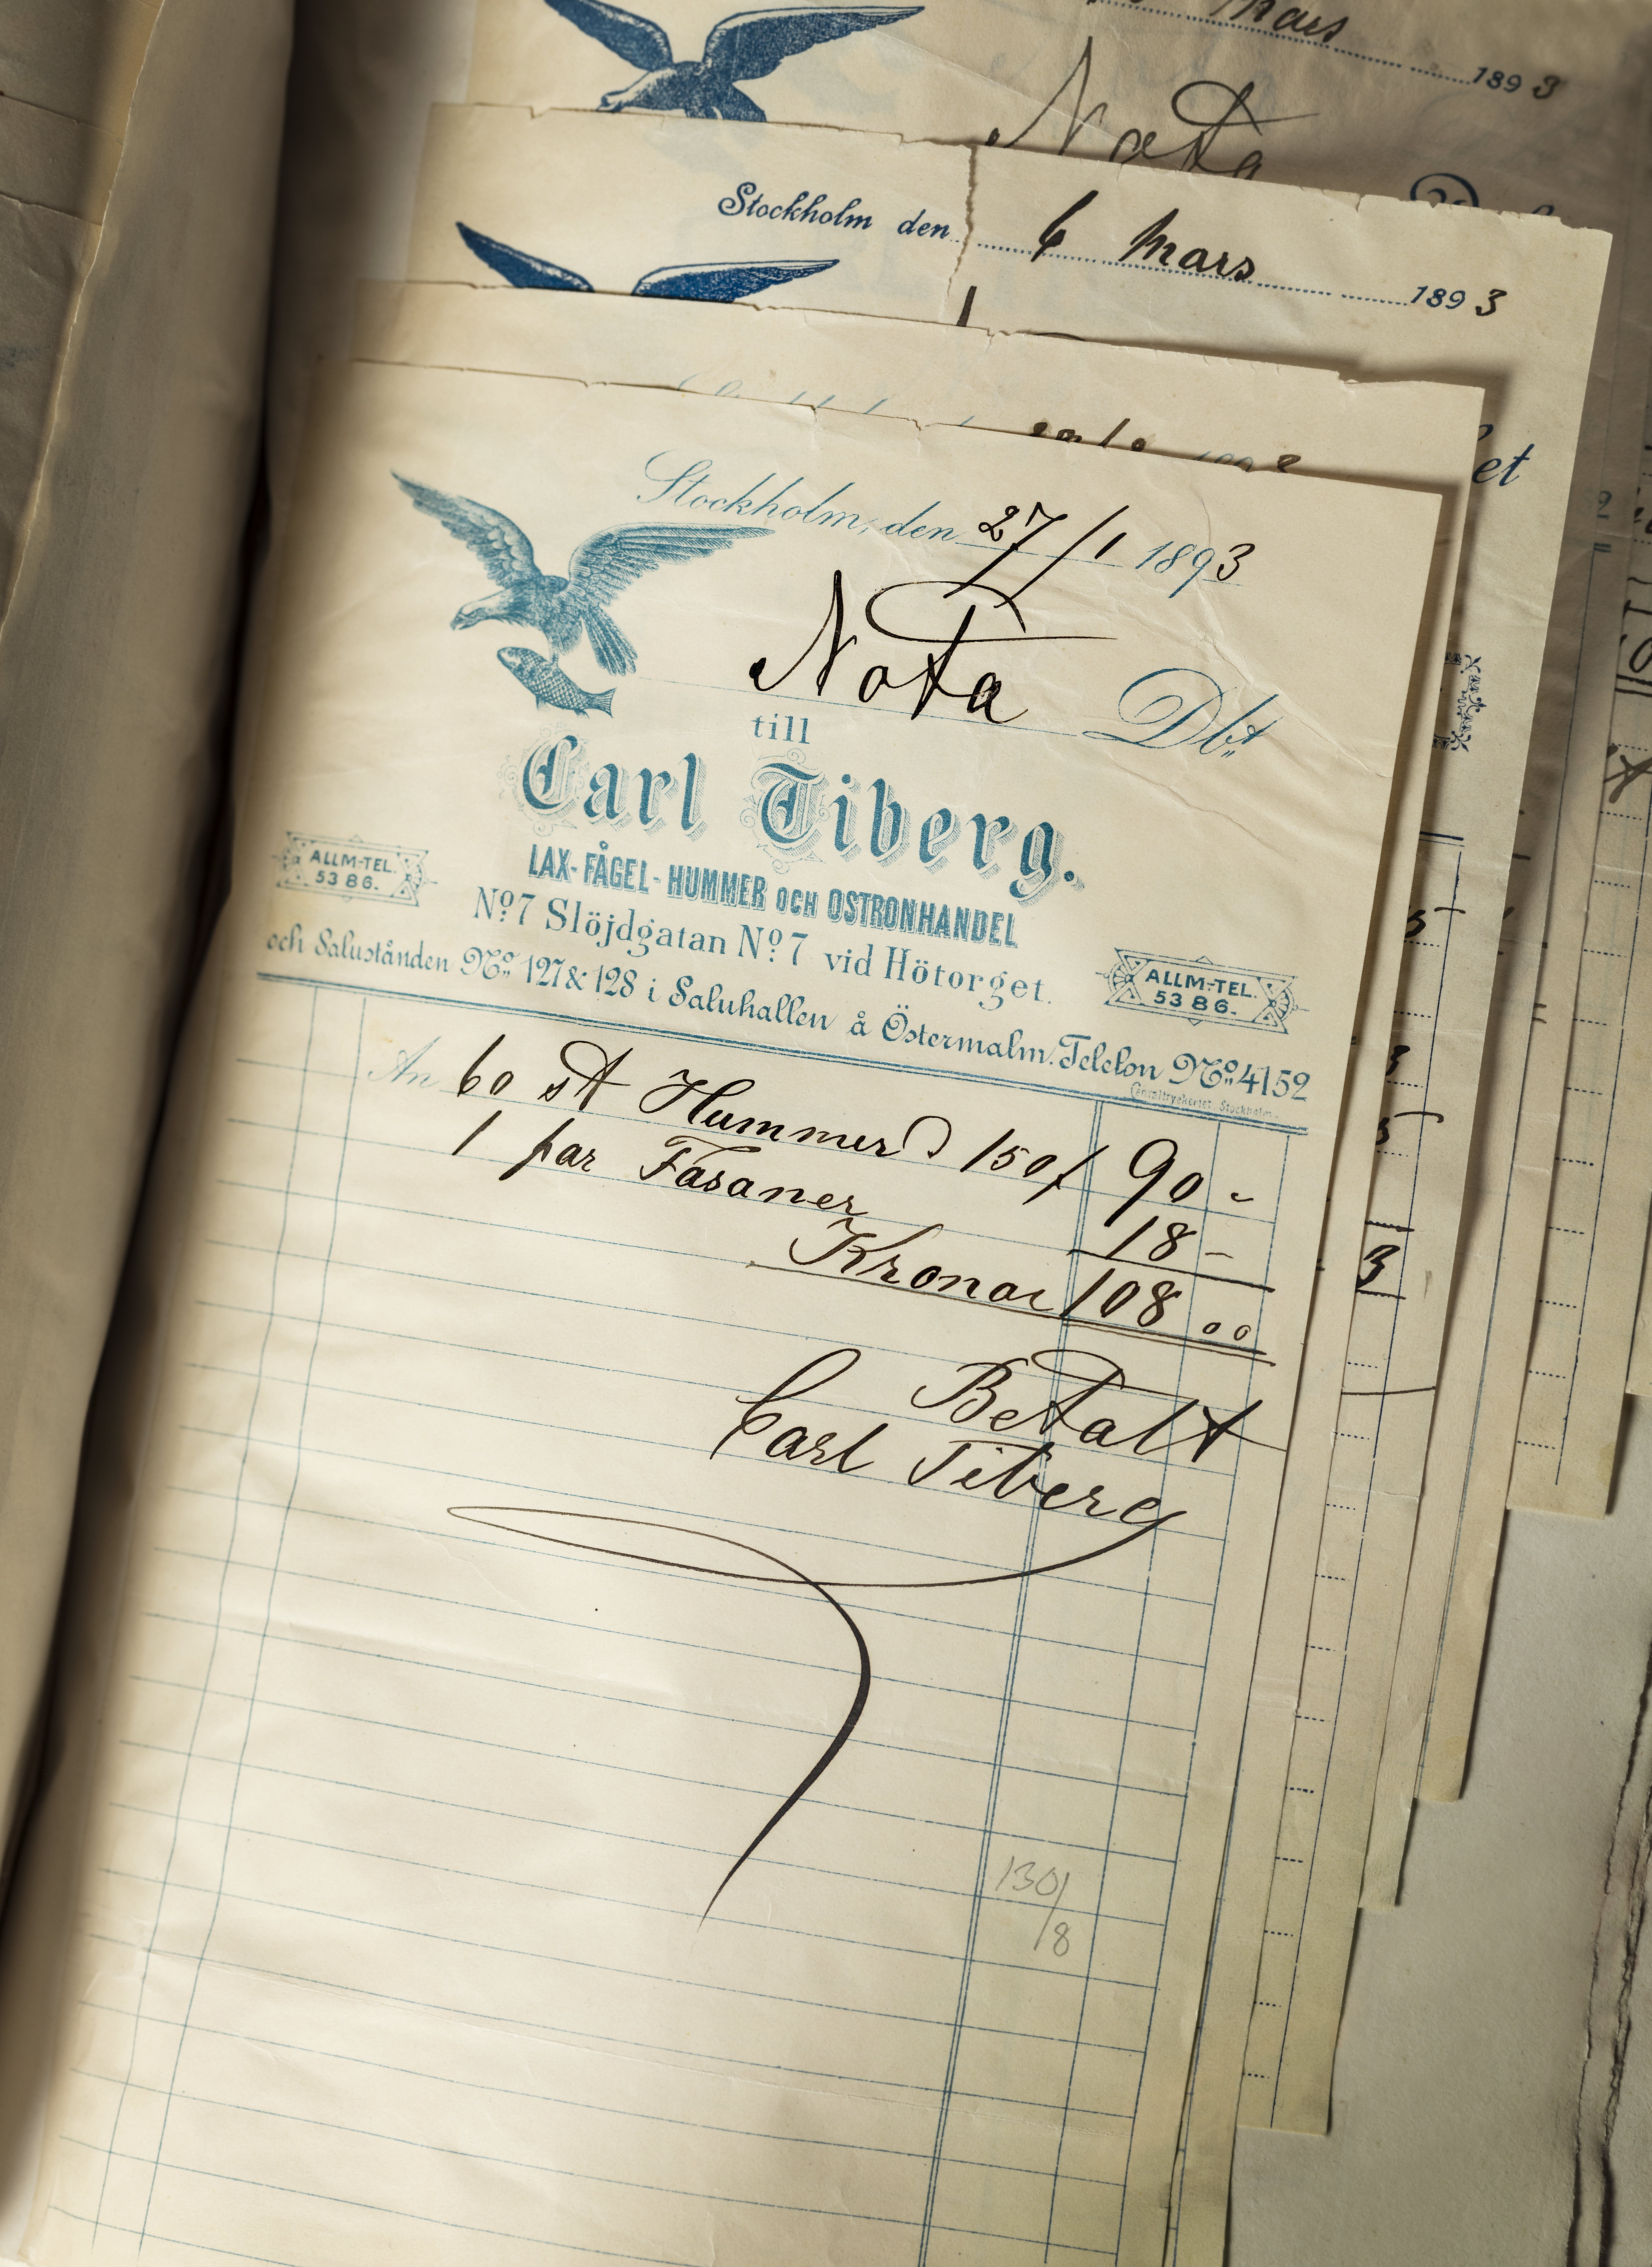 Mars
1893
Nota
Stockholm den 6 Mars 1893
et
Stockholm, den 27/1 1893
Nota Dbt
till
Carl Tiberg.
LAX- FÅGEL- HUMMER OCH OSTRONHANDEL
No 7 Slöjdgatan No 7 vid Hötorget.
ALLM.-TEL.
5386.
ALLM.-TEL.
5386.
och Salustånden No 127 & 128 i Saluhallen å Östermalm. Telefon No 4152
Centraltryckeriet, Stockholm.
An 60 st Hummer à 150/ 90 -
1 par Fasaner 18 -
Kronor 108 00
Betalt
Carl Tiberg
130/8